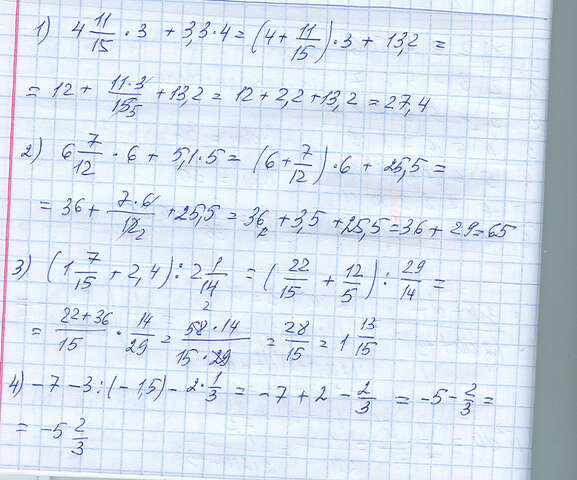 1) 4 11/15 · 3 + 3,3 · 4 = (4 + 11/15) · 3 + 13,2 =
= 12 + 11·3/15 5 + 13,2 = 12 + 2,2 + 13,2 = 27,4
2) 6 7/12 · 6 + 5,1 · 5 = (6 + 7/12) · 6 + 25,5 =
= 36 + 7·6/12 2 + 25,5 = 36 + 3,5 + 25,5 = 36 + 29 = 65
3) (1 7/15 + 2,4) : 2 1/14 = (22/15 + 12/5) : 29/14 =
= 22+36/15 · 14/29 = 2 58·14/15·29 = 28/15 = 1 13/15
4) -7 - 3 : (-1,5) - 2 · 1/3 = -7 + 2 - 2/3 = -5 - 2/3 =
= -5 2/3